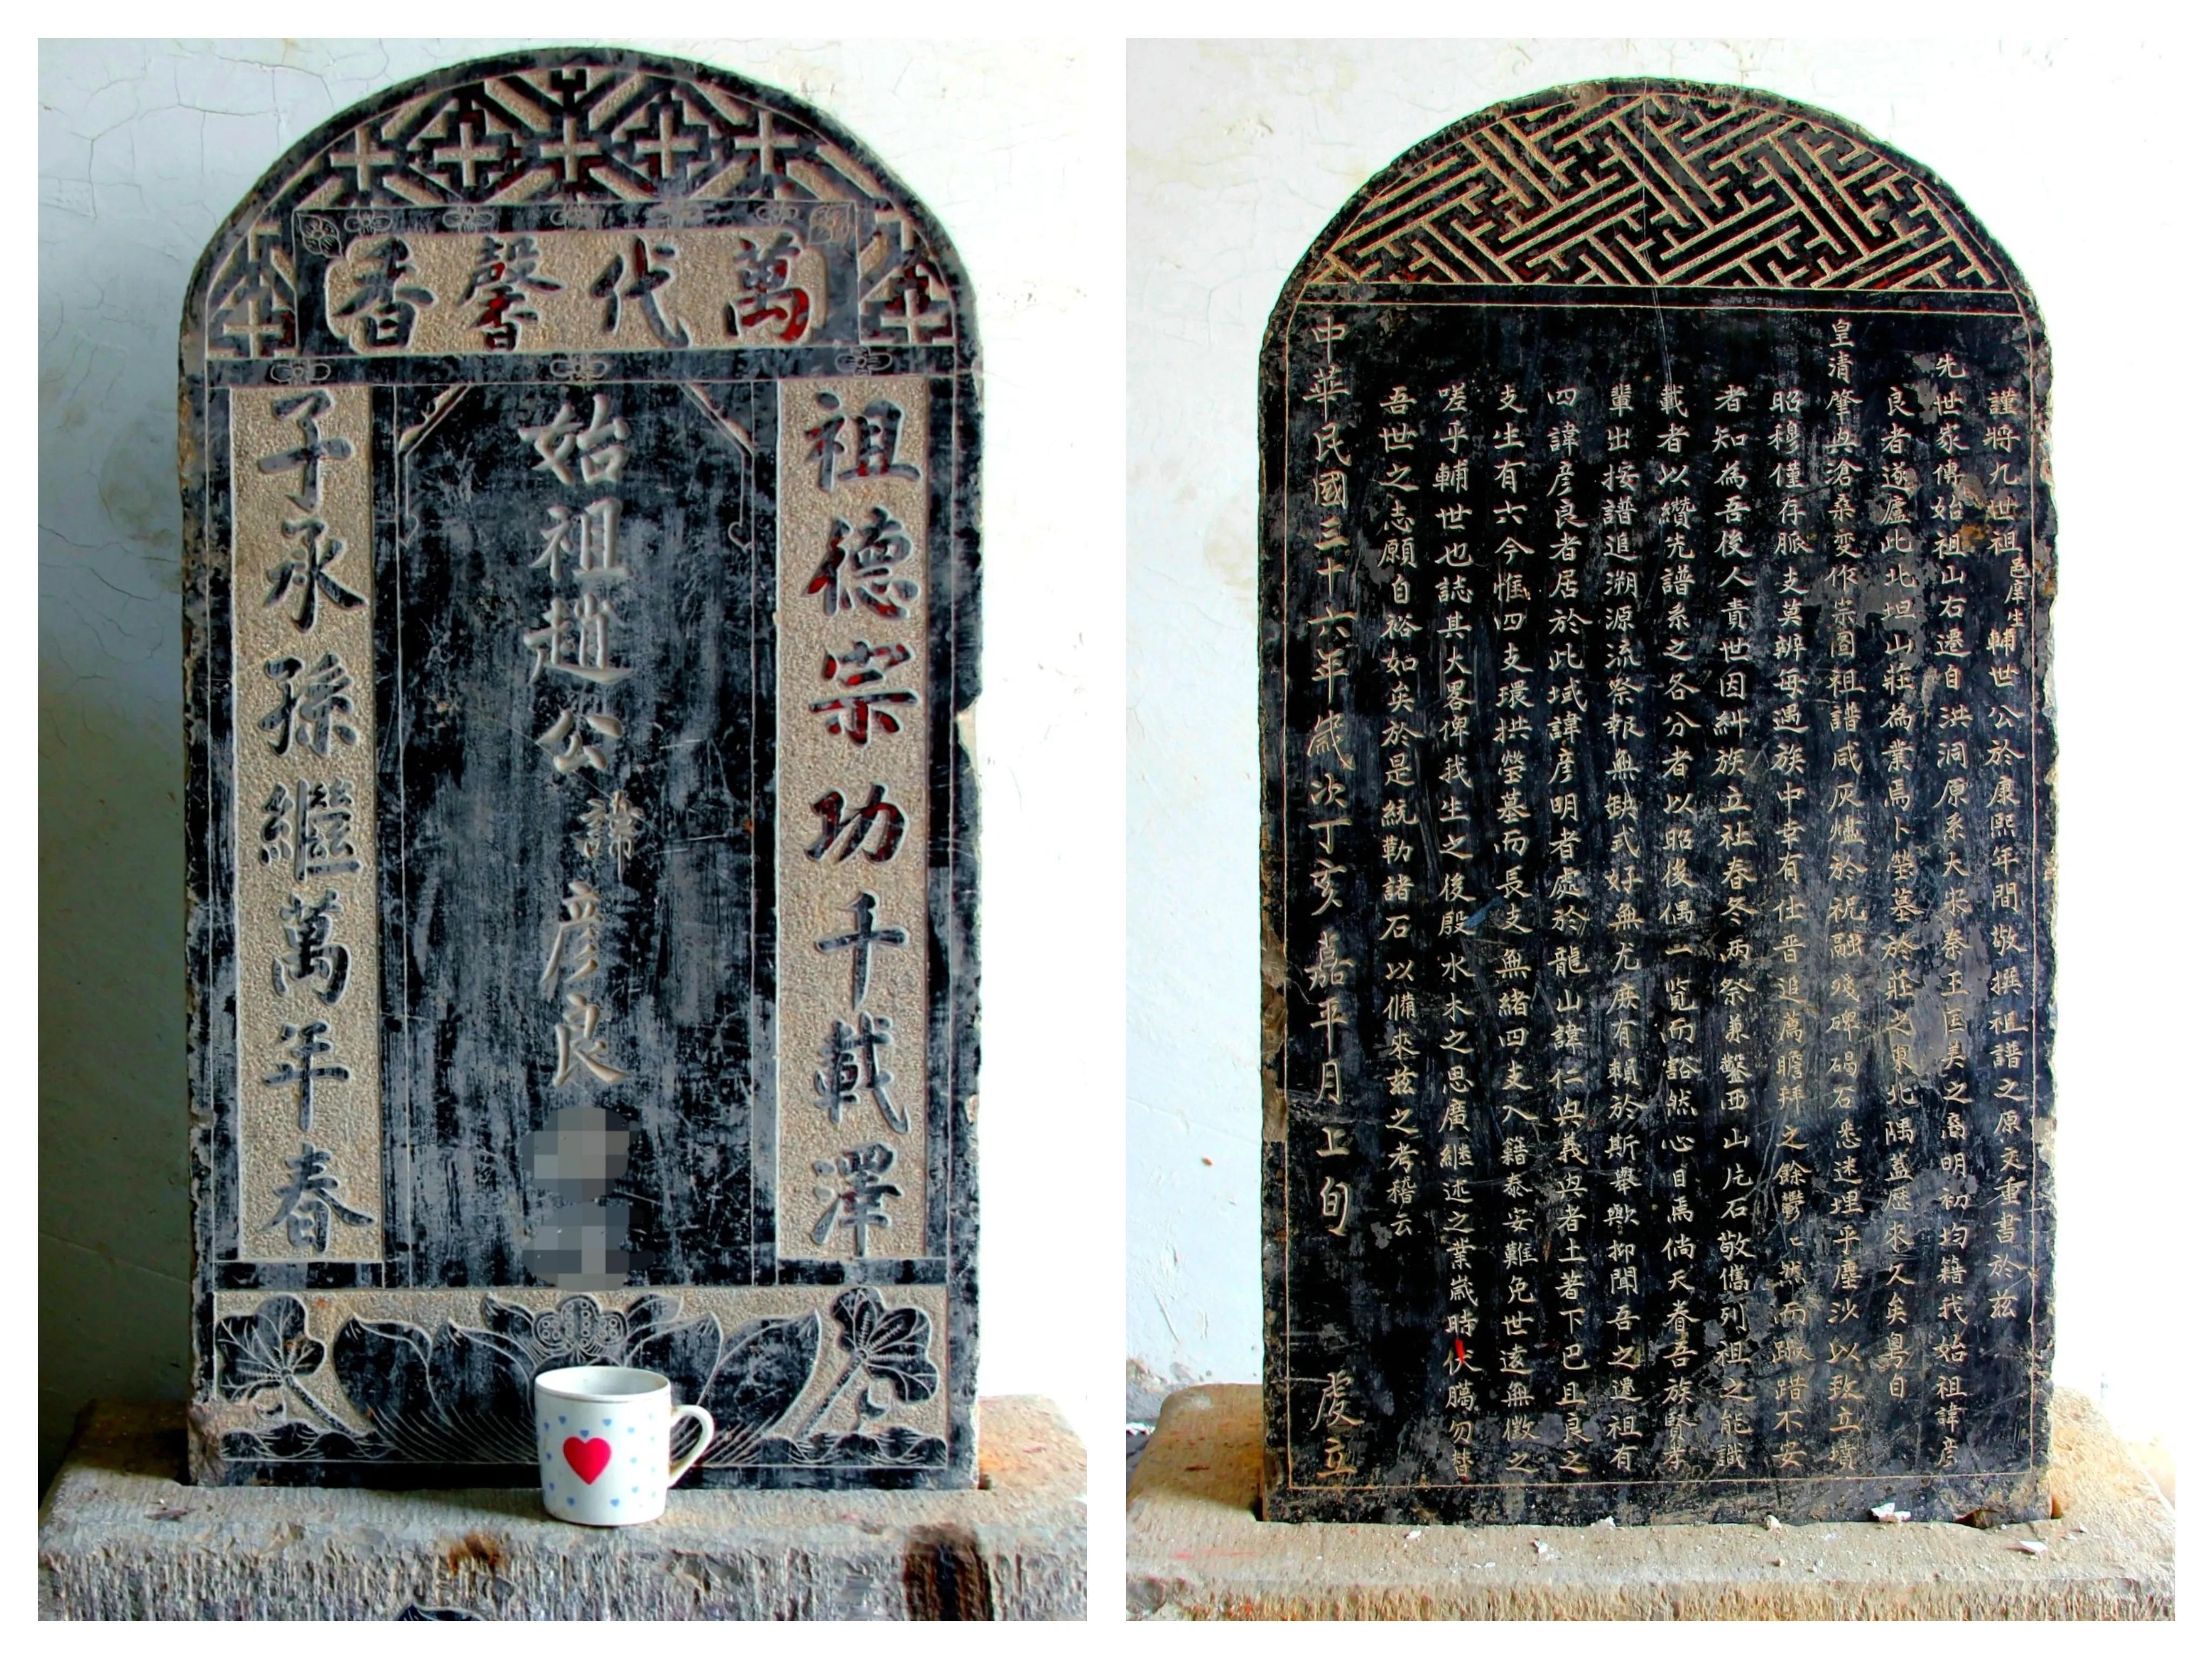 萬代馨香
祖德宗功千載澤
始祖趙公諱彦良
子承孫繼萬年春
謹將九世祖邑庠生輔世公於康熙年間敬撰祖譜之原文重書於兹
先世家傳始祖山右遷自洪洞原系大宋秦王匡美之裔明初均籍我始祖諱彦
良者遂廬此北坦山莊為業焉卜塋墓於莊之東北隅蓋歷來久矣粤自
皇清肇興滄桑变作宗圖祖譜咸灰燼於祝融殘碑碣石悉迷埋乎塵沙以致立墳
昭穆僅存脈支莫辨每遇族中幸有仕晋追薦瞻拜之餘鬱鬱然而踧踖不安
者知為吾後人責世因糾族立社春冬两祭兼鑿西山片石敬儁列祖之能識
載者以纘先譜系之各分者以昭後偶一览而豁然心目焉倘天眷吾族賢孝
輩出按譜追溯源流祭報無缺式好無尤庶有賴於斯舉歟抑聞吾之遷祖有
四諱彦良者居於此域諱彦明者處於龍山諱仁與義與者土著下巴且良之
支生有六今惟四支環拱塋墓而長支無緒四支入籍泰安難免世遠無徵之
嗟乎輔世也誌其大畧俾我生之後殷水木之思廣继述之業歲時伏臈勿替
吾世之志願自裕如矣於是統勒諸石以備來兹之考稽云
中華民國三十六年歲次丁亥嘉平月上旬 虔立